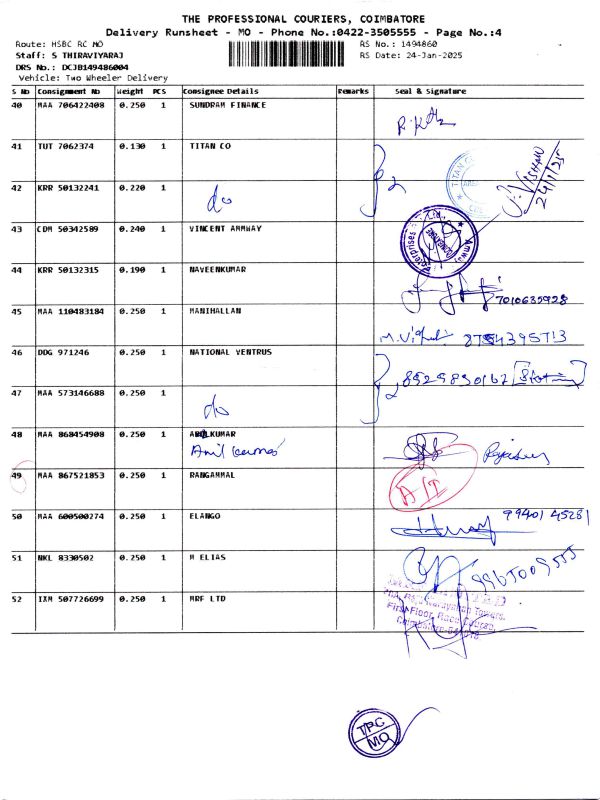 THE PROFESSIONAL COURIERS, COIMBATORE
Delivery Runsheet - MO - Phone No.:0422-3505555 - Page No.:4
Route: HSBC RC MO RS No.: 1494860
Staff: S THIRAVIYARAJ RS Date: 24-Jan-2025
DRS No.: DCJB149486004
Vehicle: Two Wheeler Delivery
S No Consignment No Weight PCS Consignee Details Remarks Seal & Signature
40 MAA 706422408 0.250 1 SUNDRAM FINANCE
41 TUT 7062374 0.130 1 TITAN CO
42 KRR 50132241 0.220 1
do 2 24/1/25
43 CDM 50342589 0.240 1 VINCENT AMMWAY
44 KRR 50132315 0.190 1 NAVEENKUMAR
7010635928
45 MAA 110483184 0.250 1 MANIHALLAN
46 DDG 971246 0.250 1 NATIONAL VENTRUS
2 8929830162
47 MAA 573146688 0.250 1
do
48 MAA 868454908 0.250 1 KUMAR
Anil Kumar
49 MAA 867521853 0.250 1 RANGAMMAL
50 MAA 600500274 0.250 1 ELANGO
99401 45281
51 NKL 8330502 0.250 1 M ELIAS
9965009555
52 IXM 507726699 0.250 1 MRF LTD
Towers,
First Floor, Race Course,
Coimbatore
TPC
MO